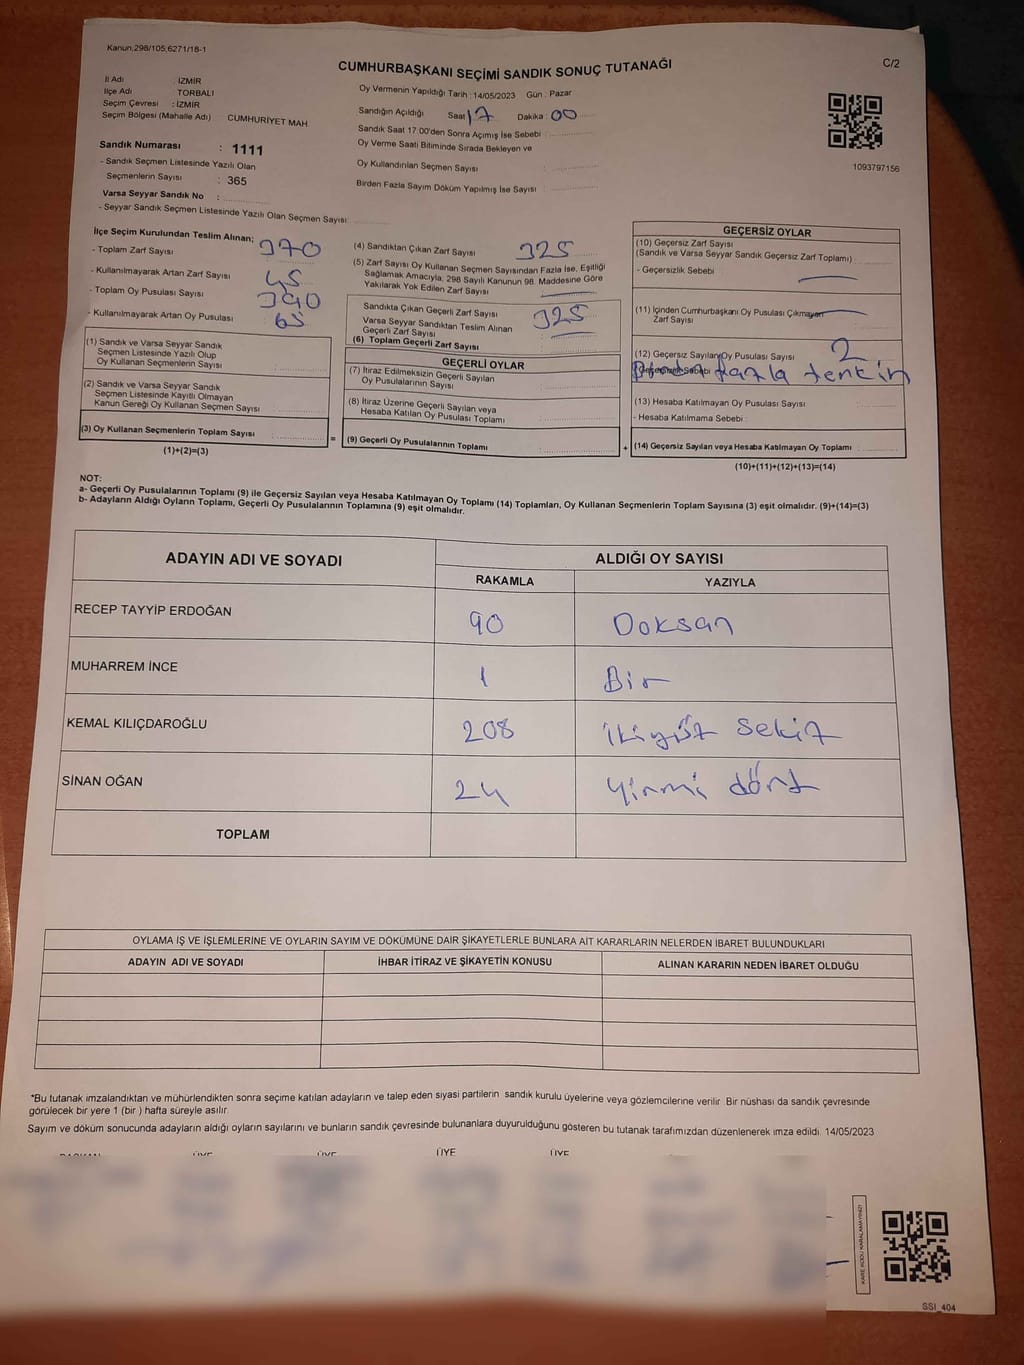 Kanun,298/105,6271/18-1
C/2
CUMHURBAŞKANI SEÇİMİ SANDIK SONUÇ TUTANAĞI
İl Adı : İZMİR
İlçe Adı : TORBALI
Seçim Çevresi : İZMİR
Seçim Bölgesi (Mahalle Adı) CUMHURİYET MAH
Sandık Numarası : 1111
- Sandık Seçmen Listesinde Yazılı Olan
Seçmenlerin Sayısı : 365
Varsa Seyyar Sandık No :
- Seyyar Sandık Seçmen Listesinde Yazılı Olan Seçmen Sayısı:
Oy Vermenin Yapıldığı Tarih : 14/05/2023 Gün : Pazar
Sandığın Açıldığı Saat 17 Dakika : 00
Sandık Saat 17:00'den Sonra Açımış İse Sebebi :
Oy Verme Saati Bitiminde Sırada Bekleyen ve
Oy Kullandırılan Seçmen Sayısı :
Birden Fazla Sayım Döküm Yapılmış İse Sayısı :
1093797156
İlçe Seçim Kurulundan Teslim Alınan:
- Toplam Zarf Sayısı 370
- Kullanılmayarak Artan Zarf Sayısı 45
- Toplam Oy Pusulası Sayısı 390
- Kullanılmayarak Artan Oy Pusulası 65
(1) Sandık ve Varsa Seyyar Sandık
Seçmen Listesinde Yazılı Olup
Oy Kullanan Seçmenlerin Sayısı :
(2) Sandık ve Varsa Seyyar Sandık
Seçmen Listesinde Kayıtlı Olmayan
Kanun Gereği Oy Kullanan Seçmen Sayısı :
(3) Oy Kullanan Seçmenlerin Toplam Sayısı :
(1)+(2)=(3)
(4) Sandıktan Çıkan Zarf Sayısı : 325
(5) Zarf Sayısı Oy Kullanan Seçmen Sayısından Fazla İse, Eşitliği
Sağlamak Amacıyla, 298 Sayılı Kanunun 98. Maddesine Göre
Yakılarak Yok Edilen Zarf Sayısı :
Sandıkta Çıkan Geçerli Zarf Sayısı : 325
Varsa Seyyar Sandıktan Teslim Alınan
Geçerli Zarf Sayısı :
(6) Toplam Geçerli Zarf Sayısı :
GEÇERLİ OYLAR
(7) İtiraz Edilmeksizin Geçerli Sayılan
Oy Pusulalarının Sayısı :
(8) İtiraz Üzerine Geçerli Sayılan veya
Hesaba Katılan Oy Pusulası Toplamı :
= (9) Geçerli Oy Pusulalarının Toplamı :
GEÇERSİZ OYLAR
(10) Geçersiz Zarf Sayısı
(Sandık ve Varsa Seyyar Sandık Geçersiz Zarf Toplamı) :
- Geçersizlik Sebebi :
(11) İçinden Cumhurbaşkanı Oy Pusulası Çıkmayan
Zarf Sayısı
(12) Geçersiz Sayılan Oy Pusulası Sayısı 2
fazla
(13) Hesaba Katılmayan Oy Pusulası Sayısı
- Hesaba Katılmama Sebebi :
+ (14) Geçersiz Sayılan veya Hesaba Katılmayan Oy Toplamı :
(10)+(11)+(12)+(13)=(14)
NOT:
a- Geçerli Oy Pusulalarının Toplamı (9) ile Geçersiz Sayılan veya Hesaba Katılmayan Oy Toplamı (14) Toplamları, Oy Kullanan Seçmenlerin Toplam Sayısına (3) eşit olmalıdır. (9)+(14)=(3)
b- Adayların Aldığı Oyların Toplamı, Geçerli Oy Pusulalarının Toplamına (9) eşit olmalıdır.
ADAYIN ADI VE SOYADI ALDIĞI OY SAYISI
RAKAMLA YAZIYLA
RECEP TAYYİP ERDOĞAN 90 Doksan
MUHARREM İNCE 1 Bir
KEMAL KILIÇDAROĞLU 208 ikiyüz sekiz
SİNAN OĞAN 24 yirmi dört
TOPLAM
OYLAMA İŞ VE İŞLEMLERİNE VE OYLARIN SAYIM VE DÖKÜMÜNE DAİR ŞİKAYETLERLE BUNLARA AİT KARARLARIN NELERDEN İBARET BULUNDUKLARI
ADAYIN ADI VE SOYADI İHBAR İTİRAZ VE ŞİKAYETİN KONUSU ALINAN KARARIN NEDEN İBARET OLDUĞU
*Bu tutanak imzalandıktan ve mühürlendikten sonra seçime katılan adayların ve talep eden siyasi partilerin sandık kurulu üyelerine veya gözlemcilerine verilir. Bir nüshası da sandık çevresinde
görülecek bir yere 1 (bir ) hafta süreyle asılır.
Sayım ve döküm sonucunda adayların aldığı oyların sayılarını ve bunların sandık çevresinde bulunanlara duyurulduğunu gösteren bu tutanak tarafımızdan düzenlenerek imza edildi. 14/05/2023
BAŞKAN ÜYE ÜYE ÜYE ÜYE
KARE KODU KARALAMAYINIZ!
SSI_404